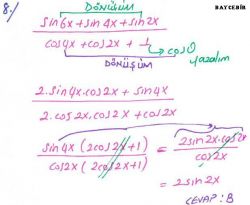 BAYCEBIR
8./
DÖNÜŞÜM
sin6x + sin4x + sin2x
cos4x + cos2x + 1 → cos0
yazalım
DÖNÜŞÜM
2.sin4x.cos2x + sin4x
2.cos2x.cos2x + cos2x
sin4x (2cos2x+1) = 2sin2x.cos2x
cos2x (2cos2x+1) cos2x
= 2sin2x
CEVAP: B